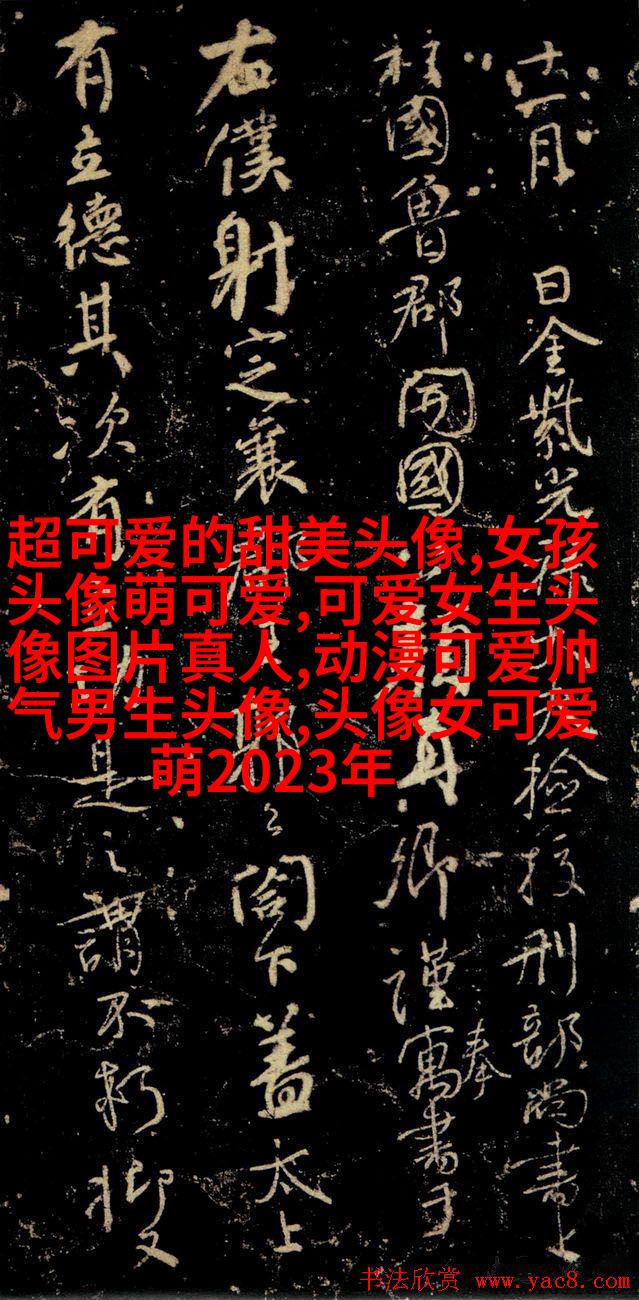 十一月 日金紫光祿大夫檢校刑部尚書上
柱國魯郡開國公顏真卿謹奉寓書于
右僕射定襄郡王郭公閤下蓋太上
有立德其次有立功是之謂不朽抑又
超可爱的甜美头像,女孩
头像萌可爱,可爱女生头
像图片真人,动漫可爱帅
气男生头像,头像女可爱
萌2023年
书法欣赏 www.yac8.com